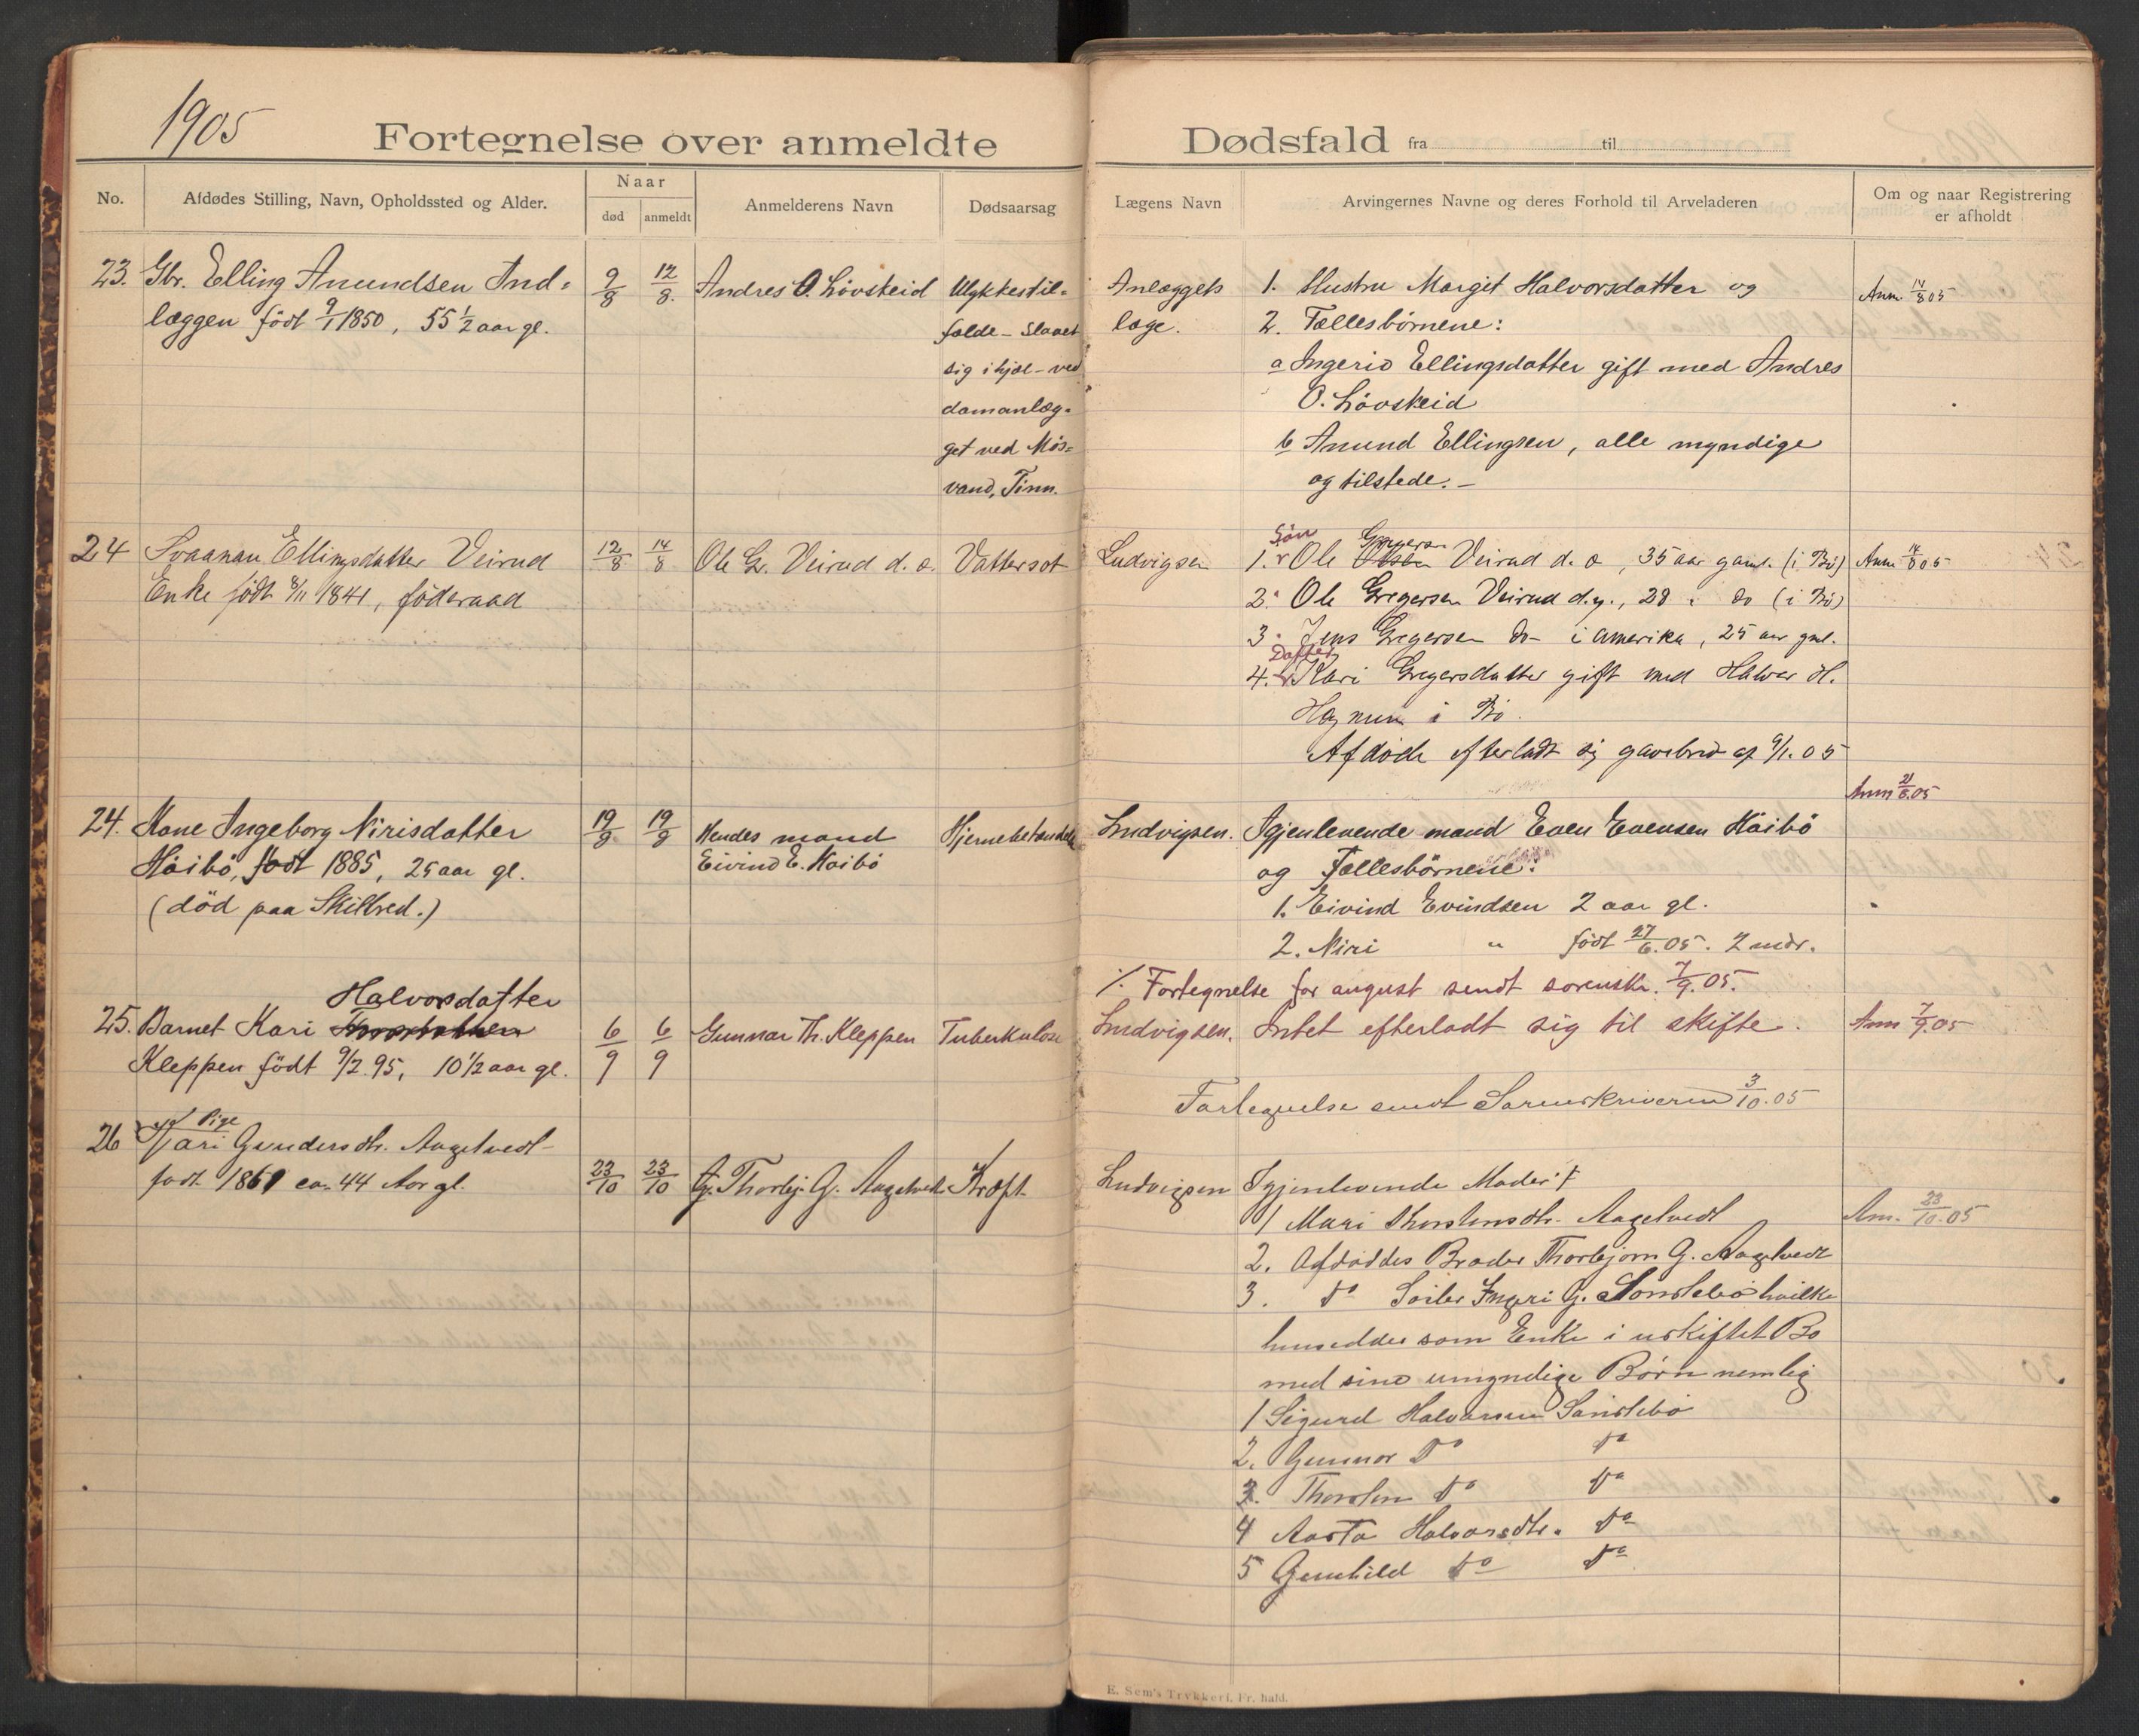 1905
Fortegnelse over anmeldte Dødsfald fra til
No.
Afdødes Stilling, Navn, Opholdssted og Alder.
Naar
død
anmeldt
Anmelderens Navn
Dødsaarsag
Lægens Navn
Arvingernes Navne og deres Forhold til Arveladeren
Om og naar Registrering
er afholdt
23. Gbr. Elling Anundsen Ind-
læggen født 9/1 1850, 55 1/2 aar gl.
9/8
12/8.
Andres O. Lövskeid
Ulykkestil-
fælde - Slaaet
sig ihjæl - ved
damanlæg-
get ved Mös-
vand, Tinn.
Anlæggets
læge.
1. Hustru Margit Halvorsdatter og
2. Fællesbörnene:
a Ingerid Ellingsdatter gift med Andres
O. Lövskeid
b Anund Ellingsen, alle myndige
og tilstede. -
Anm. 14/8 05
24 Svaanau Ellingsdatter Veirud
Enke födt 8/11 1841, föderaad
12/8
14/8
Ole Gr. Veirud d. æ.
Vattersot
Ludvigsen
Sön Gregersen
1. Ole Olsen Veirud d. æ, 35 aar gaml. (i Bö)
2. " Ole Gregersen Veirud d.y., 28 " do (i Bö)
3 " Jens Gregersen do - i Amerika, 25 aar gml.
Datter
4. Kari Gregersdatter gift med Halvor H.
Hagnum i Bö.
Afdöde efterladt sig gavebrev af 9/1. 05
Anm. 14/8 05
24. Kone Ingeborg Nirisdatter
Höibö, født 1885, 25 aar gl.
(död paa Skilbred.)
19/8
19/8
Hendes mand
Eivind E. Höibö
Ludvigsen.
Igjenlevende mand Even Evensen Höibö
og Fællesbörnene:
1. Eivind Evindsen 2 aar gl.
2. Niri " født 27/6. 05. 2 mdr.
Anm 21/8. 05
./. Fortegnelse for august sendt sorenskr. 7/9. 05.
Halvorsdatter
25. Barnet Kari
Kleppen födt 9/2. 95, 10 1/2 aar gl.
6/9
6/9
Gunnar Th. Kleppen
Tuberkulose
Ludvigsen.
Intet efterladt sig til skifte.
Anm 7/9. 05
Fortegnelse sendt Sorenskriveren 3/10. 05
Pige
26 Kari Gundersdtr. Aagetvedt
født 1861 ca. 44 Aar gl.
23/10
23/10
G. Thorbj. G. Aagetvedt
Kræft
Ludvigsen
Igjenlevende Moder:
1 Mari Thorstensdtr. Aagetvedt
2. Afdöddes Broder Thorbjørn G. Aagetvedt
3. do Söster Ingeri G. Sandsbö hvilke
hensidder som Enke i uskiftet Bo
med sine umyndige Børn nemlig
1 Sigurd Halvorsen Sandsbö
2. Gunnar do do
3. Thorsten do do
4 Aasta Halvorsdtr. do
5 Gunhild do do
Am. 23/10. 05
E. Sem's Trykkeri, Fr. hald.